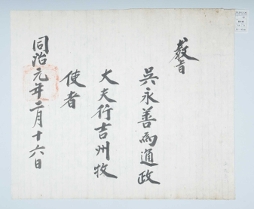 敎旨
吳永善為通政
大夫行吉州牧
使者
同治元年二月十六日